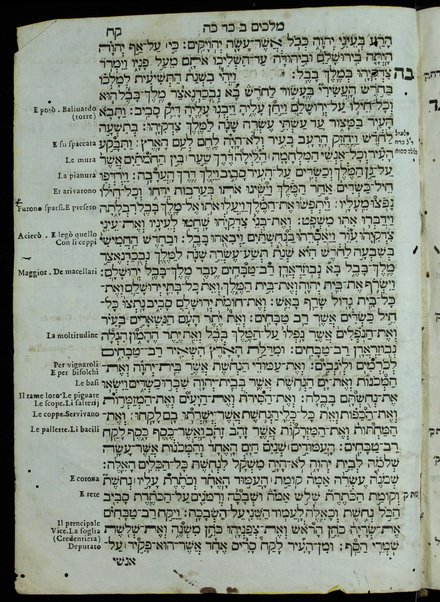 מלכים ב כד כה
קח
הרע בעיני יהוה ככל אשר־עשה יהויקים: כי על־אף יהוה
היתה בירושלם וביהודה עד־השלכו אתם מעל פניו וימרד
צדקיהו במלך בבל: ויהי בשנת התשיעית למלכו
כה
בחדש העשירי בעשור לחדש בא נבכדנאצר מלך־בבל הוא
וכל־חילו על־ירושלם ויחן עליה ויבנו עליה דיק סביב: ותבא
העיר במצור עד עשתי עשרה שנה למלך צדקיהו: בתשעה
לחדש ויחזק הרעב בעיר ולא־היה לחם לעם הארץ: ותבקע
העיר וכל־אנשי המלחמה הלילה דרך שער בין החמתים אשר
על־גן המלך וכשדים על־העיר סביב וילך דרך הערבה: וירדפו
חיל־כשדים אחר המלך וישגו אתו בערבות ירחו וכל־חילו
נפצו מעליו: ויתפשו את־המלך ויעלו אתו אל־מלך בבל רבלתה
וידברו אתו משפט: ואת־בני צדקיהו שחטו לעיניו ואת־עיני
צדקיהו עור ויאסרהו בנחשתים ויבאהו בבל: ובחדש החמישי
בשבעה לחדש היא שנת תשע־עשרה שנה למלך נבכדנאצר
מלך בבל בא נבוזראדן רב־טבחים עבד מלך־בבל ירושלם:
וישרף את־בית־יהוה ואת־בית המלך ואת כל־בתי ירושלם ואת־
כל־בית גדול שרף באש: ואת־חומת ירושלם סביב נתצו כל־
חיל כשדים אשר רב־טבחים: ואת יתר העם הנשארים בעיר
ואת־הנפלים אשר נפלו על־המלך בבל ואת יתר ההמון הגלה
נבוזראדן רב־טבחים: ומדלת הארץ השאיר רב־טבחים
לכרמים וליגבים: ואת־עמודי הנחשת אשר בית־יהוה ואת־
המכנות ואת־ים הנחשת אשר בבית־יהוה שברו כשדים וישאו
את־נחשתם בבלה: ואת־הסירת ואת־היעים ואת־המזמרות
ואת־הכפות ואת כל־כלי הנחשת אשר ישרתו־בם לקחו: ואת־
המחתות ואת־המזרקות אשר זהב זהב ואשר־כסף כסף לקח
רב־טבחים: העמודים שנים הים האחד והמכנות אשר־עשה
שלמה לבית יהוה לא־היה משקל לנחשת כל־הכלים האלה:
שמנה עשרה אמה קומת העמוד האחד וכתרת עליו נחשת
וקומת הכתרת שלש אמה ושבכה ורמנים על־הכתרת סביב
הכל נחשת וכאלה לעמוד השני על־השבכה: ויקח רב־טבחים
את־שריה כהן הראש ואת־צפניהו כהן משנה ואת־שלשת
שמרי הסף: ומן־העיר לקח סריס אחד אשר־הוא פקיד על־
אנשי
E poſò. Baliuardo
(torre)
E fu spaccata
Le mura
La pianura
Et arivarono
Furono sparſi. E preſero
Aciecò. E legò quello
Con ſi ceppi
Maggior. De macellari
La moltitudine
Per vignaroli
E per bifolchi
Le baſi
Il rame loro. Le pignate
Le ſcope. Li ſalterij
Le coppe. Servivano
Le pallette. Li bacili
E corona
E rete
Il prencipale
Vice. La ſoglia
(Credentiera)
Deputato